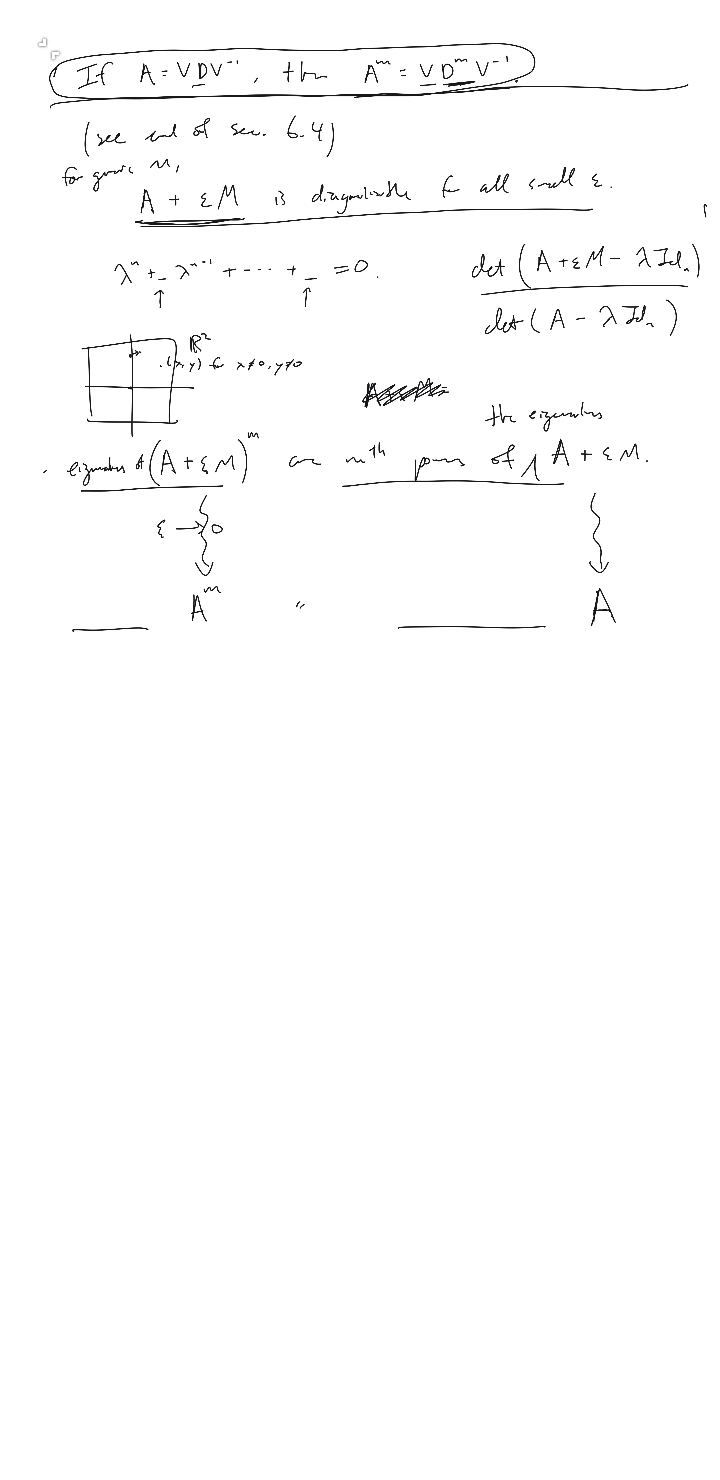 If A = VDV⁻¹, then Aᵐ = VDᵐV⁻¹.
(see end of sec. 6.4)
for generic M,
A + εM is diagonalizable for all small ε.
λⁿ + _ λⁿ⁻¹ + ··· + _ = 0.
det (A + εM - λ Idₙ)
det (A - λ Idₙ)
ℝ²
(x, y) for x≠0, y≠0
the eigenvalues
eigenvalues of (A + εM)ᵐ are mᵗʰ powers of A + εM.
ε → 0
Aᵐ " A